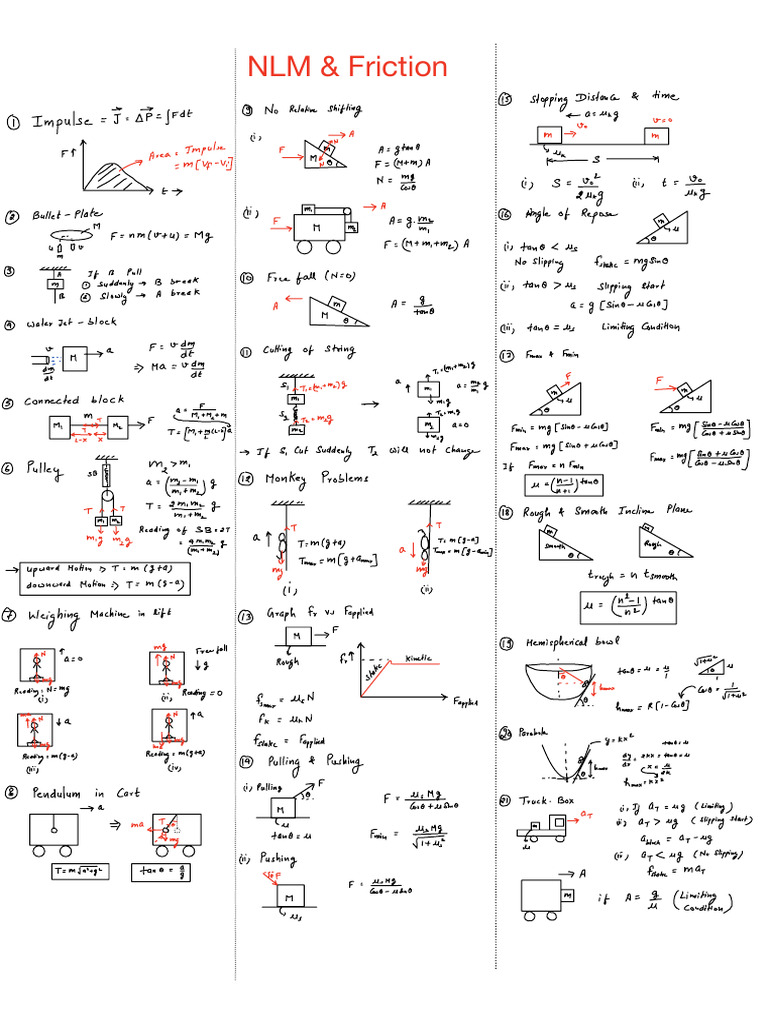 NLM & Friction
① Impulse = J⃗ = ΔP⃗ = ∫Fdt
F↑
Area = Impulse
= m[Vf-Vi]
t→
② Bullet-Plate
M
F = nm(v+u) = Mg
u v
m
③ If B Pull
① Suddenly → B break
② Slowly → A break
A
m
B
④ Water Jet-block
v
dm/dt
M → a
F = v dm/dt
⇒ Ma = v dm/dt
⑤ Connected block
M₁ m M₂ → F
T T
L-x x
a = F/(M₁+M₂+m)
T = [M₁+m/L(L-x)]a
⑥ Pulley
SB
m₂ > m₁
a = ((m₂-m₁)/(m₁+m₂)) g
T = 2m₁m₂/(m₁+m₂) g
Reading of SB = 2T
= 4m₁m₂/(m₁+m₂) g
T T
m₁ m₂
m₁g m₂g
→ upward Motion ⇒ T = m(g+a)
downward Motion ⇒ T = m(g-a)
⑦ Weighing Machine in lift
N
mg
↑a=0
Reading = N = mg
(i)
mg
N
mg
Free fall
↓g
(ii) Reading = 0
ma N
mg
↓a
Reading = m(g-a)
(iii)
N
↑a
Reading = m(g+a)
(iv)
⑧ Pendulum in Cart
→a
⇒
ma T
mg
T = m√(a²+g²)
tanθ = a/g
⑨ No Relative Shifting
(i)
F → M m N θ
→ A
A = g tanθ
F = (M+m) A
N = mg/cosθ
(ii)
m₁
F → M m₂
→ A
A = g. m₂/m₁
F = (M+m₁+m₂) A
⑩ Free fall (N=0)
A ←
m
M θ
A = g/tanθ
⑪ Cutting of String
S₁ T₁=(m₁+m₂)g
m₁
S₂ T₂=m₂g
m₂
→
T₁=(m₁+m₂)g
a↑ m₁
m₁g
T₂=m₂g
a↑ m₂
m₂g
a=0
→ If S₁ Cut Suddenly T₂ will not change
⑫ Monkey Problems
a↑ T
mg
T = m(g+a)
Tmax = m[g+amax]
(i)
a↓ T
mg
T = m(g-a)
(ii)
⑬ Graph fr vs Fapplied
M → F
Rough
fr↑
Static
Kinetic
Fapplied
fsmax = μsN
fk = μkN
fstatic = Fapplied
⑭ Pulling & Pushing
(i) Pulling
F
θ
M
μ
tanθ = μ
F = μsMg/(cosθ+μsinθ)
Fmin = μsMg/√(1+μ²)
(ii) Pushing
θ F
M
μs
F = μsMg/(cosθ-μsinθ)
⑮ Stopping Distance & time
← a = μkg
m → v₀
v=0
m
μk
S
(i) S = v₀²/2μkg (ii) t = v₀/μkg
⑯ Angle of Repose
m
θ μ
(i) tanθ < μs
No Slipping fstatic = mgsinθ
(ii) tanθ > μs Slipping Start
a = g[sinθ-μcosθ]
(iii) tanθ = μs Limiting Condition
⑰ Fmax & Fmin
F
m
μ
θ
F →
m
μ
θ
Fmin = mg[sinθ-μcosθ]
Fmax = mg[sinθ+μcosθ]
Fmin = mg[(sinθ-μcosθ)/(cosθ+μsinθ)]
Fmax = mg[(sinθ+μcosθ)/(cosθ-μsinθ)]
If Fmax = n Fmin
μ = ((n-1)/(n+1)) tanθ
⑱ Rough & Smooth Incline Plane
m
Smooth θ
m
Rough θ
trough = n tsmooth
μ = ((n²-1)/n²) tanθ
⑲ Hemispherical bowl
θ
hmax
θ
tanθ = μ = μ/1
√(1+μ²) μ
θ
1
cosθ = 1/√(1+μ²)
hmax = R[1-cosθ]
⑳ Parabola
y = kx²
dy/dx = 2kx = tanθ = μ
tanθ = μ
x = μ/2k
hmax = kx²
hmax
θ
㉑ Truck-Box
→ aT
(i) If aT = μg (Limiting)
(ii) aT > μg (Slipping Start)
ablock = aT - μg
(iii) aT < μg (No Slipping)
fstatic = maT
→ A
M
if A = g/μ (Limiting Condition)